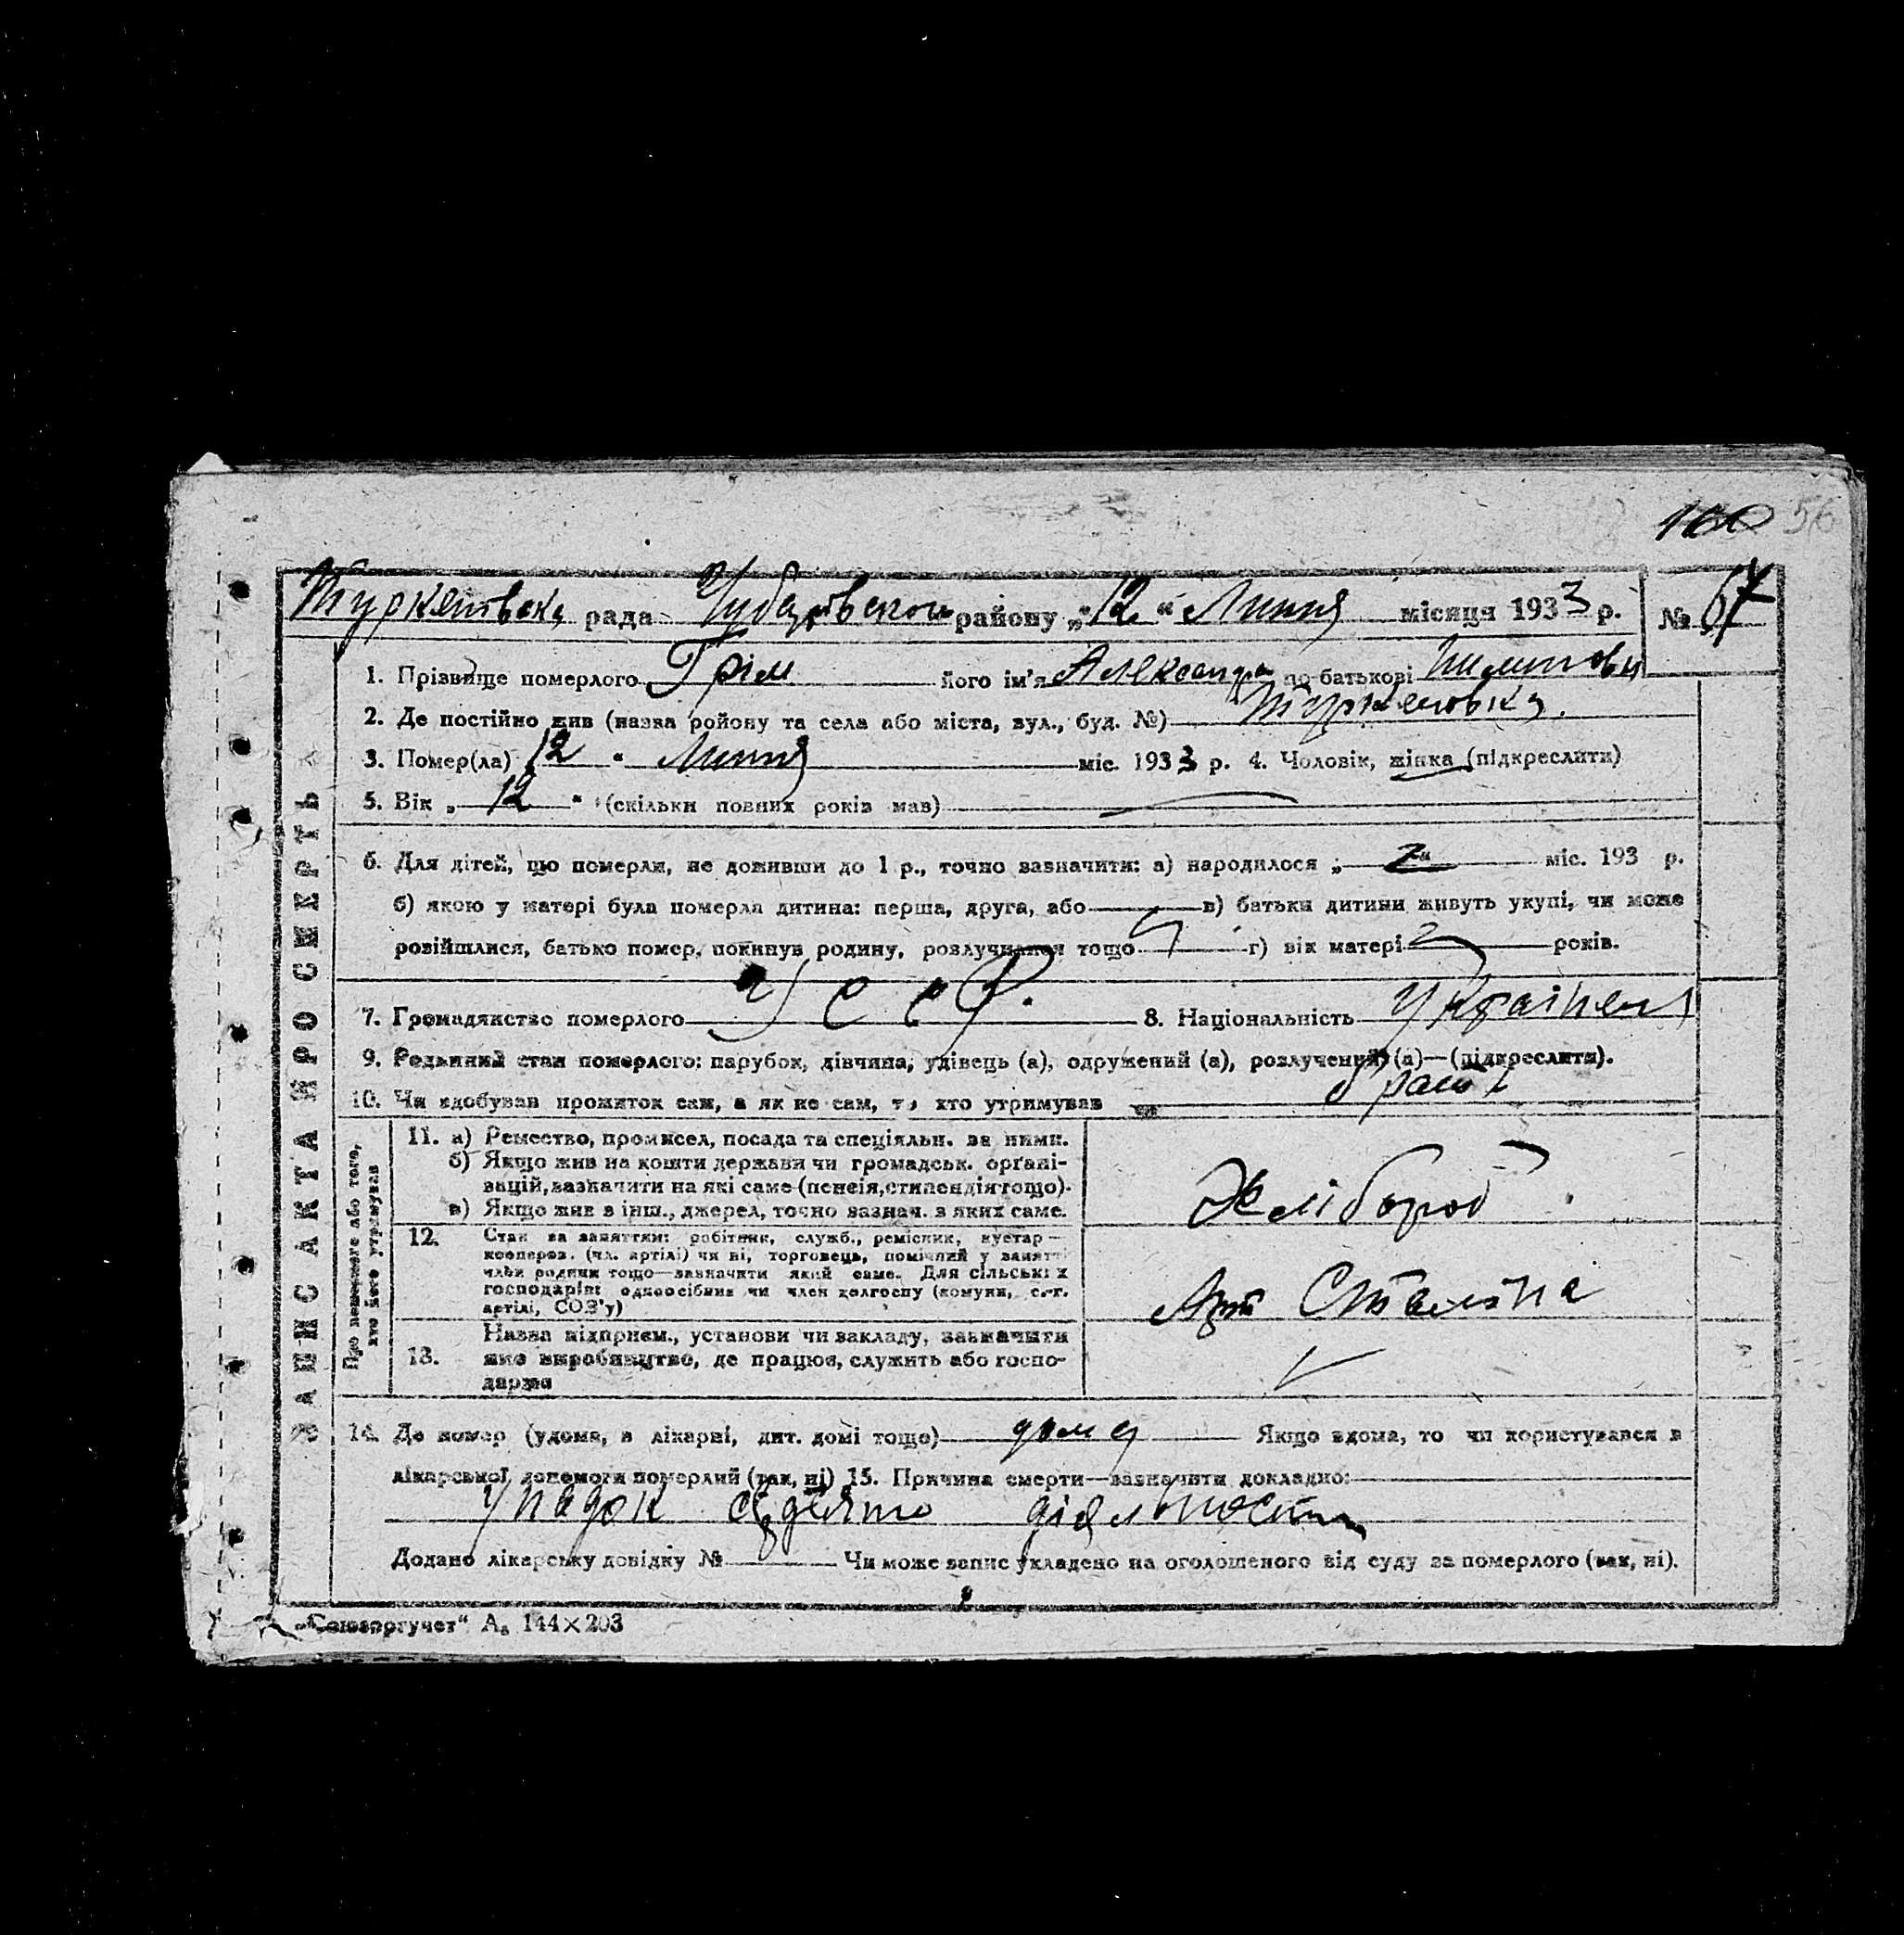 100 56
Туркенівська рада Чубарівського району „12“ Липня місяця 1933 р. № 67
1. Прізвище померлого Грім його ім'я Александра по батькові Пилипови
2. Де постійно жив (назва району та села або міста, вул., буд. №) Туркеновка.
3. Помер(ла) 12 „ Липня міс. 1933 р. 4. Чоловік, жінка (підкреслити)
5. Вік „ 12 “ (скільки повних років мав)
6. Для дітей, що померли, не доживши до 1 р., точно зазначити: а) народилося „ міс. 193 р.
б) якою у матері була померла дитина: перша, друга, або в) батьки дитини живуть укупі, чи може
розійшлися, батько помер, покинув родину, розлучилися тощо г) вік матері років.
7. Громадянство померлого УССР. 8. Національність
9. Родинний стан померлого: парубок, дівчина, удівець (а), одружений (а), розлучений (а)—(підкреслити).
10. Чи здобував прожиток сам, а як не сам, то хто утримував
ЗАПИС АКТА ПРО СМЕРТЬ
Про померлого або того, хто його утримував
11. а) Ремество, промисел, посада та спеціяльн. за ними.
б) Якщо жив на кошти держави чи громадськ. організацій, зазначити на які саме (пенсія, стипендія тощо).
в) Якщо жив в інш., джерел, точно зазнач. з яких саме.
Хлібороб
12. Стан за заняттям: робітник, служб., ремісник, кустар—
коопероз. (чл. артілі) чи ні, торговець, помічний у занятті
член родини тощо—зазначити який саме. Для сільських
господарів: одноосібник чи член колгоспу (комуни, с.-г.
артілі, СОЗ'у)
Арт Сталіна
Назва підприєм., установи чи закладу, зазначити
13. яке виробництво, де працює, служить або госпо-
дарює
14. Де помер (удома, в лікарні, дит. домі тощо) дома Якщо вдома, то чи користувався з
лікарської допомоги померлий (так, ні) 15. Причина смерти—зазначити докладно:
Упадок діяльности
Додано лікарську довідку № Чи може запис укладено на оголошеного від суду за померлого (так, ні).
„Союзоргучет“ А₅ 144×203